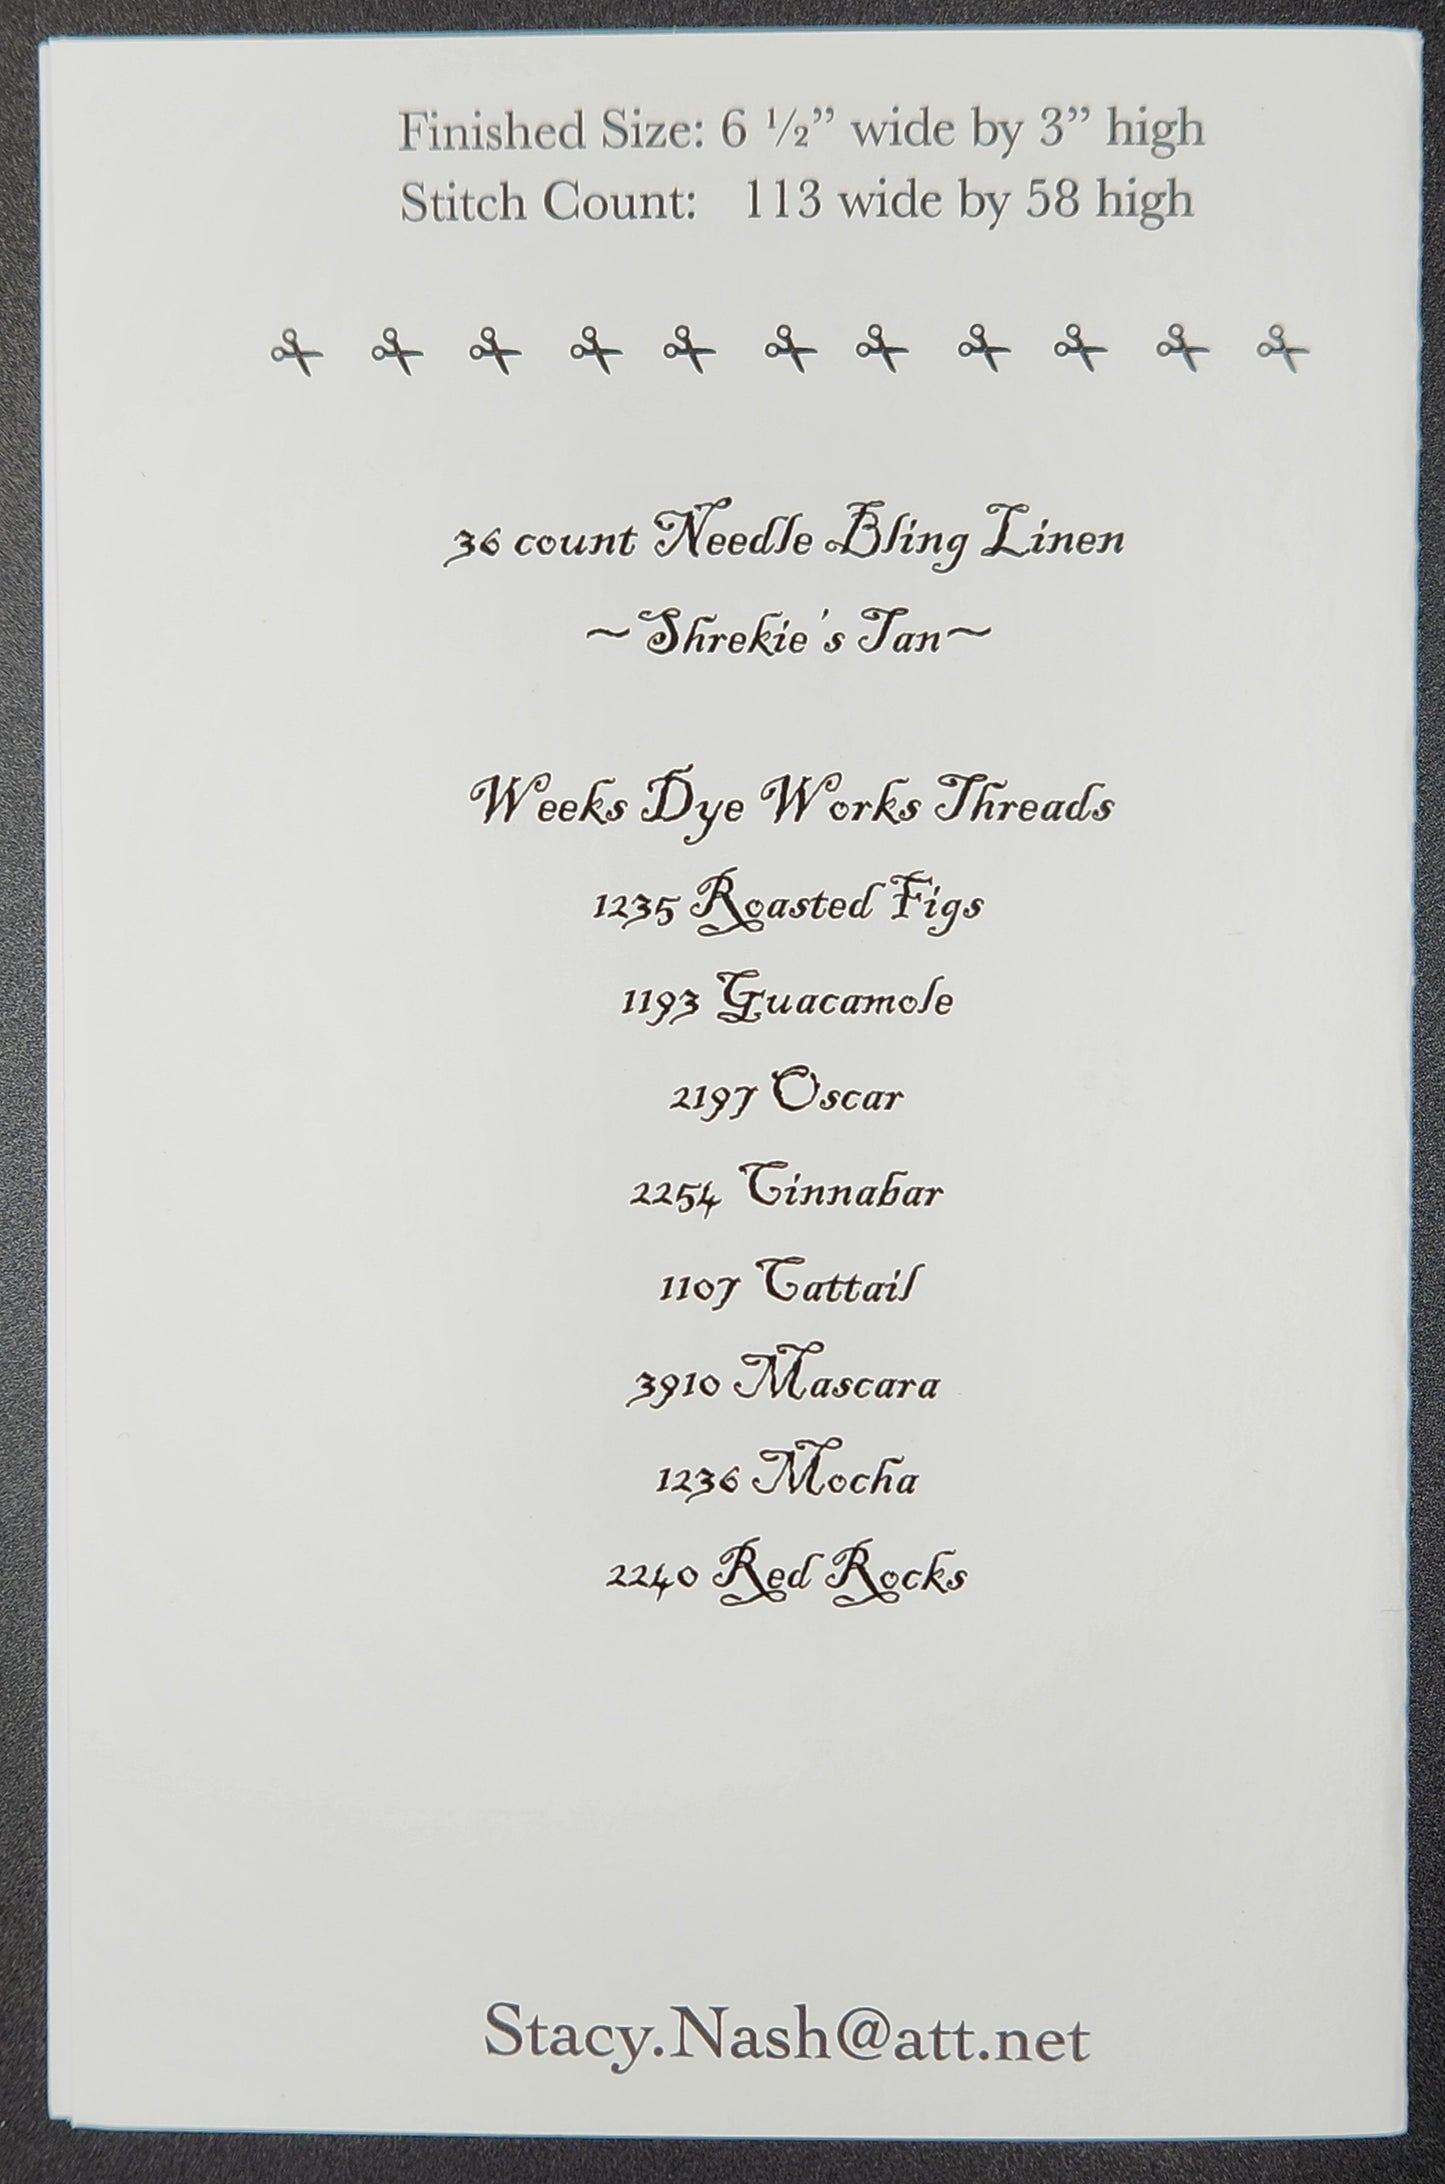 Finished Size: 6 ½” wide by 3” high
Stitch Count: 113 wide by 58 high
36 count Needle Bling Linen
~Shrekie's Tan~
Weeks Dye Works Threads
1235 Roasted Figs
1193 Guacamole
2197 Oscar
2254 Cinnabar
1107 Cattail
3910 Mascara
1236 Mocha
2240 Red Rocks
Stacy.Nash@att.net